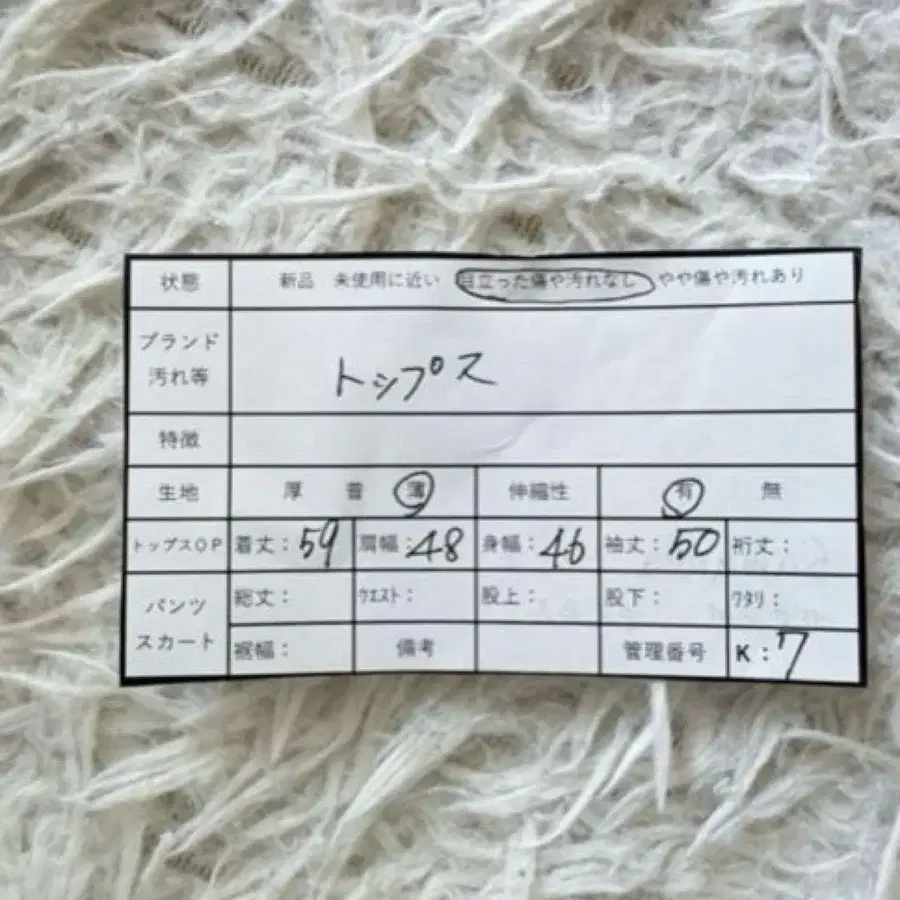 状態 新品 未使用に近い 目立った傷や汚れなし やや傷や汚れあり
ブランド
汚れ等
トップス
特徴
生地 厚 普 薄 伸縮性 有 無
トップスOP 着丈:59 肩幅:48 身幅:46 袖丈:50 裄丈:
パンツ
スカート
総丈: ウエスト: 股上: 股下: ワタリ:
裾幅: 備考 管理番号 K:7